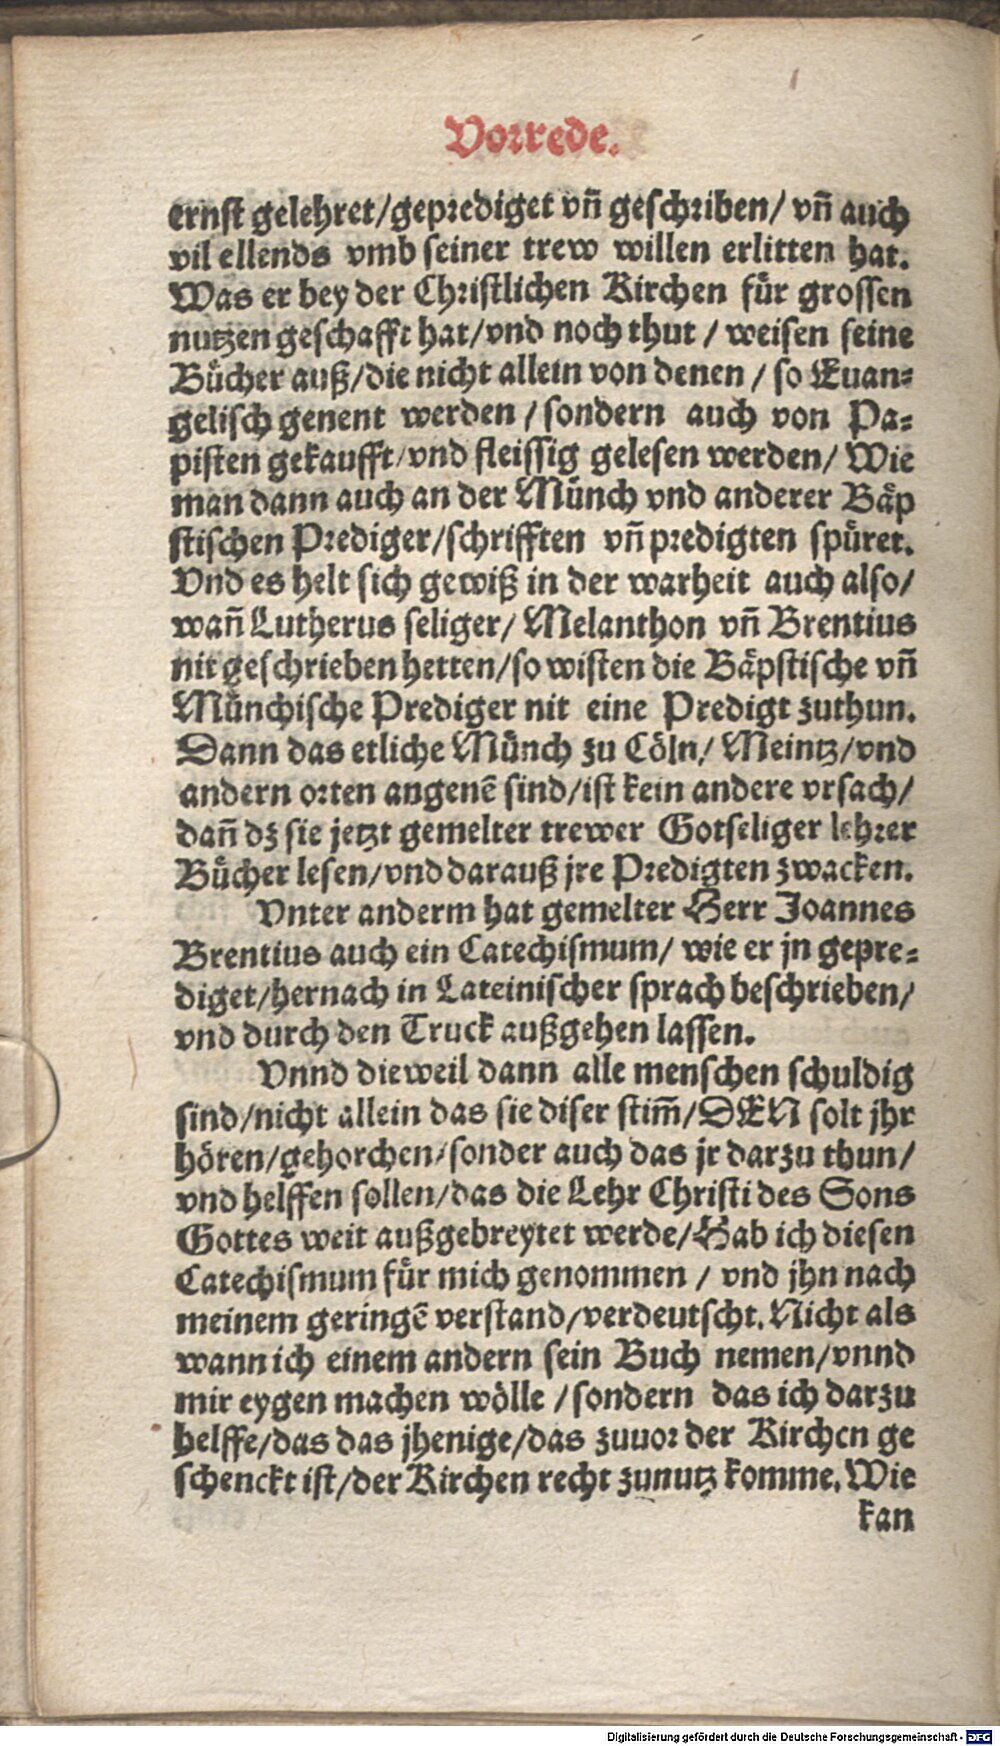 Vorrede.
ernst gelehret/geprediget vñ geschriben/ vñ auch
vil ellends vmb seiner trew willen erlitten hat.
Was er bey der Christlichen Kirchen für grossen
nutzen geschafft hat/vnd noch thut / weisen seine
Bücher auß/die nicht allein von denen / so Euan-
gelisch genent werden / sondern auch von Pa-
pisten gekaufft/vnd fleissig gelesen werden/ Wie
man dann auch an der Münch vnd anderer Bäp
stischen Prediger/schrifften vñ predigten spüret.
Vnd es helt sich gewiß in der warheit auch also/
wañ Lutherus seliger/ Melanthon vñ Brentius
nit geschrieben hetten/so wisten die Bäpstische vñ
Münchische Prediger nit eine Predigt zuthun.
Dann das etliche Münch zu Cöln/ Meintz/vnd
andern orten angenẽ sind/ist kein andere vrsach/
dañ dz sie jetzt gemelter trewer Gotseliger lehrer
Bücher lesen/vnd darauß jre Predigten zwacken.
Vnter anderm hat gemelter Herr Joannes
Brentius auch ein Catechismum/ wie er jn gepre-
diget/hernach in Lateinischer sprach beschrieben/
vnd durch den Truck außgehen lassen.
Vnnd dieweil dann alle menschen schuldig
sind/nicht allein das sie diser stim̃/DEN solt jhr
hören/gehorchen/sonder auch das jr darzu thun/
vnd helffen sollen/das die Lehr Christi des Sons
Gottes weit außgebreytet werde/Hab ich diesen
Catechismum für mich genommen / vnd jhn nach
meinem geringẽ verstand/verdeutscht. Nicht als
wann ich einem andern sein Buch nemen/vnnd
mir eygen machen wölle /sondern das ich darzu
helffe/das das jhenige/das zuuor der Kirchen ge
schenckt ist/der Kirchen recht zunutz komme. Wie
kan
Digitalisierung gefördert durch die Deutsche Forschungsgemeinschaft - DFG